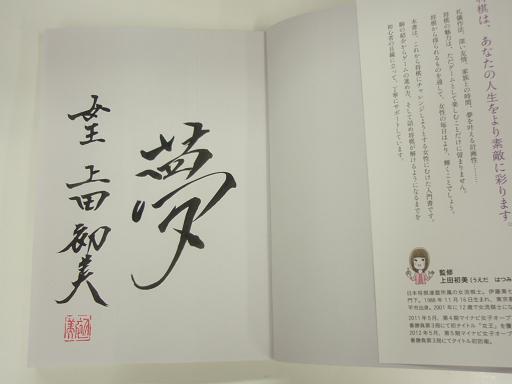 夢
女王 上田初美
将棋は、あなたの人生をより素敵に彩ります。
礼儀作法、深い友情、家族との時間、夢を叶える計画性……
将棋の魅力は、ただゲームとして楽しむことだけに留まりません。
将棋から得られるものを通して、女性の毎日はより、輝くことでしょう。
本書は、これから将棋にチャレンジしようとする女性にむけた入門書です。
駒の紹介からゲームの進め方、そして詰め将棋が解けるようになるまでを
初心者の目線に立って、丁寧にサポートしています。
監修
上田初美(うえだ はつみ
日本将棋連盟所属の女流棋士。伊藤果七
門下。1988年11月16日生まれ、東京都
平市出身。2001年に12歳で女流棋士にな
2011年5月、第4期マイナビ女子オープ
番勝負第3局にて初タイトル「女王」を獲
2012年5月、第5期マイナビ女子オープ
番勝負第3局にてタイトル初防衛。